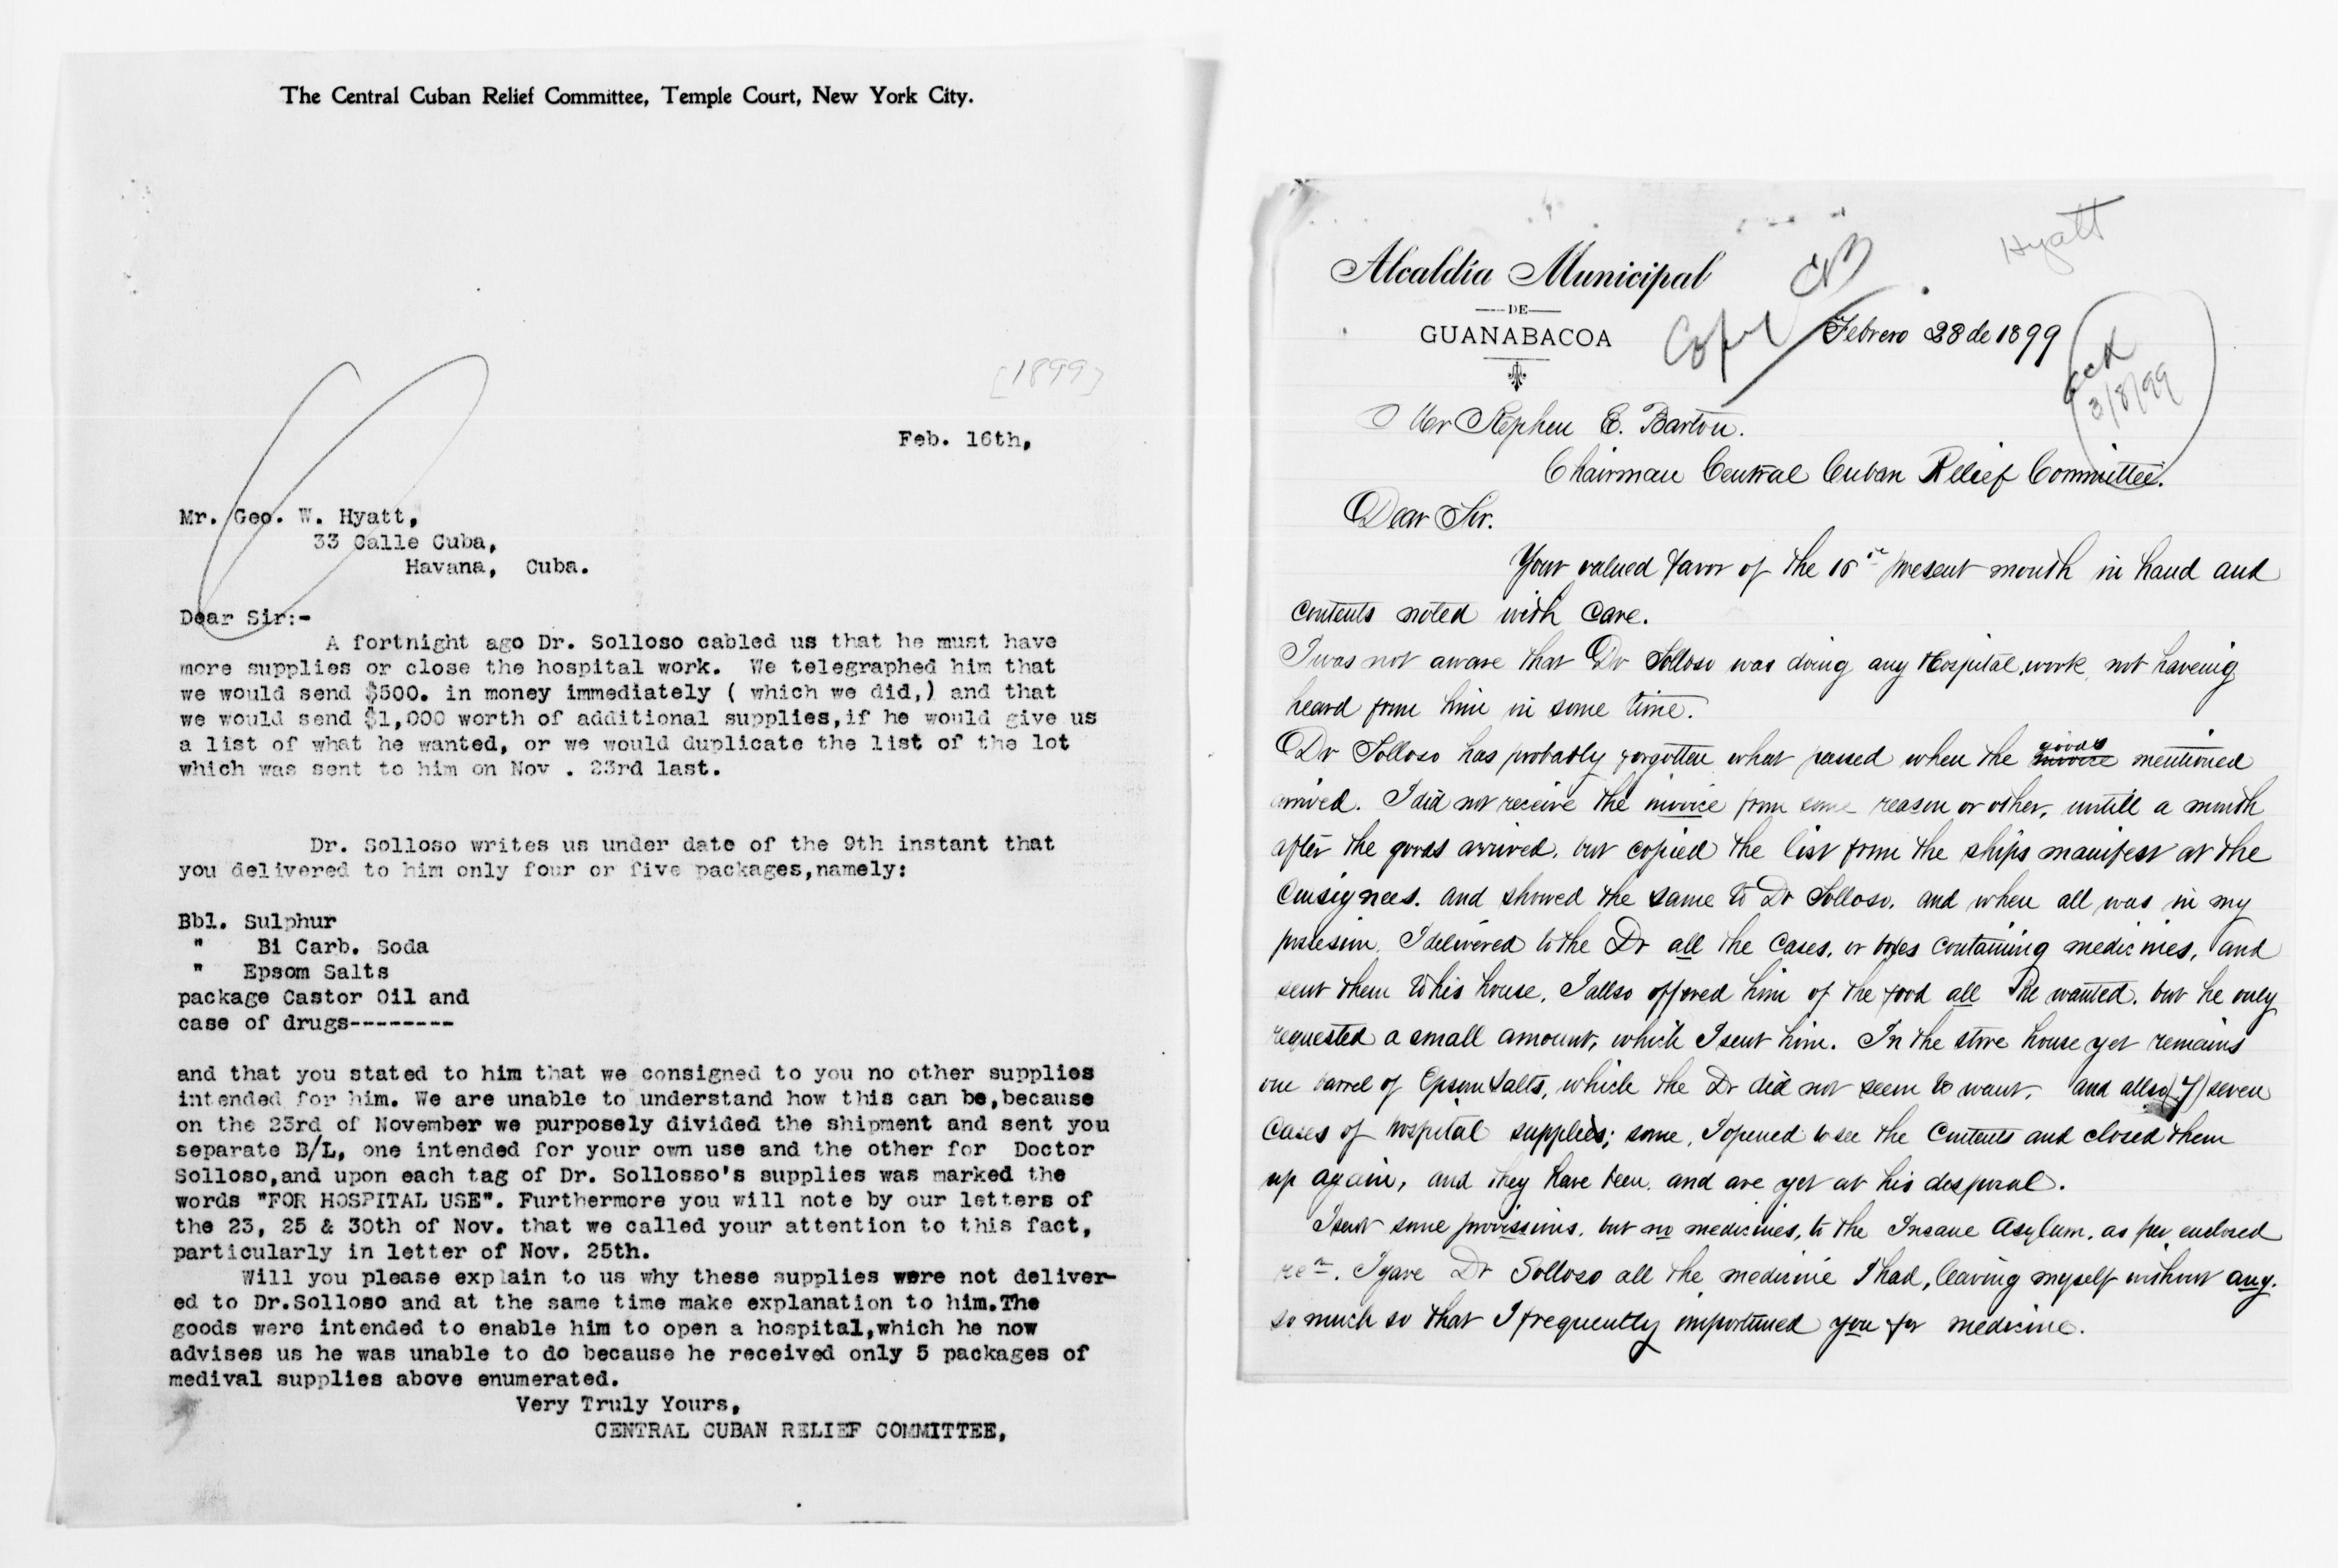 The Central Cuban Relief Committee, Temple Court, New York City.
[1899]
Feb. 16th,
Mr. Geo. W. Hyatt,
33 Calle Cuba,
Havana, Cuba.
Dear Sir:-
A fortnight ago Dr. Solloso cabled us that he must have
more supplies or close the hospital work. We telegraphed him that
we would send $500. in money immediately ( which we did,) and that
we would send $1,000 worth of additional supplies,if he would give us
a list of what he wanted, or we would duplicate the list of the lot
which was sent to him on Nov . 23rd last.
Dr. Solloso writes us under date of the 9th instant that
you delivered to him only four or five packages,namely:
Bbl. Sulphur
" Bi Carb. Soda
" Epsom Salts
package Castor Oil and
case of drugs--------
and that you stated to him that we consigned to you no other supplies
intended for him. We are unable to understand how this can be,because
on the 23rd of November we purposely divided the shipment and sent you
separate B/L, one intended for your own use and the other for Doctor
Solloso,and upon each tag of Dr. Sollosso's supplies was marked the
words "FOR HOSPITAL USE". Furthermore you will note by our letters of
the 23, 25 & 30th of Nov. that we called your attention to this fact,
particularly in letter of Nov. 25th.
Will you please explain to us why these supplies were not deliver-
ed to Dr.Solloso and at the same time make explanation to him.The
goods were intended to enable him to open a hospital,which he now
advises us he was unable to do because he received only 5 packages of
medival supplies above enumerated.
Very Truly Yours,
CENTRAL CUBAN RELIEF COMMITTEE,
Hyatt
Alcaldía Municipal
DE
GUANABACOA
Copy
Febrero 28 de 1899
3/8/99
Mr Stephen E. Barton.
Chairman Central Cuban Relief Committee.
Dear Sir.
Your valued favor of the 16th present month in hand and
contents noted with care.
I was not aware that Dr Solloso was doing any Hospital work, not haveing
heard from him in some time.
Dr Solloso has probably forgotten what passed when the goods invoice mentioned
arrived. I did not receive the invoice from some reason or other, untill a month
after the goods arrived. but copied the list from the ships manifest at the
Consignees. and showed the same to Dr Solloso. and when all was in my
possesion. I delivered to the Dr all the Cases, or boxes containing medicines, and
sent them to his house. I allso offered him of the food all he wanted. but he only
requested a small amount, which I sent him. In the store house yet remains
one barrel of Epsom Salts, which the Dr did not seem to want. and allso (7) seven
Cases of hospital supplies; some, I opened to see the Contents and closed them
up again, and they have been. and are yet at his desposal.
I sent some provissions. but no medicines, to the Insane Asylum. as per enclosed
I gave Dr Solloso all the medicine I had, leaving myself without any.
so much so that I frequently importuned you for medicine.